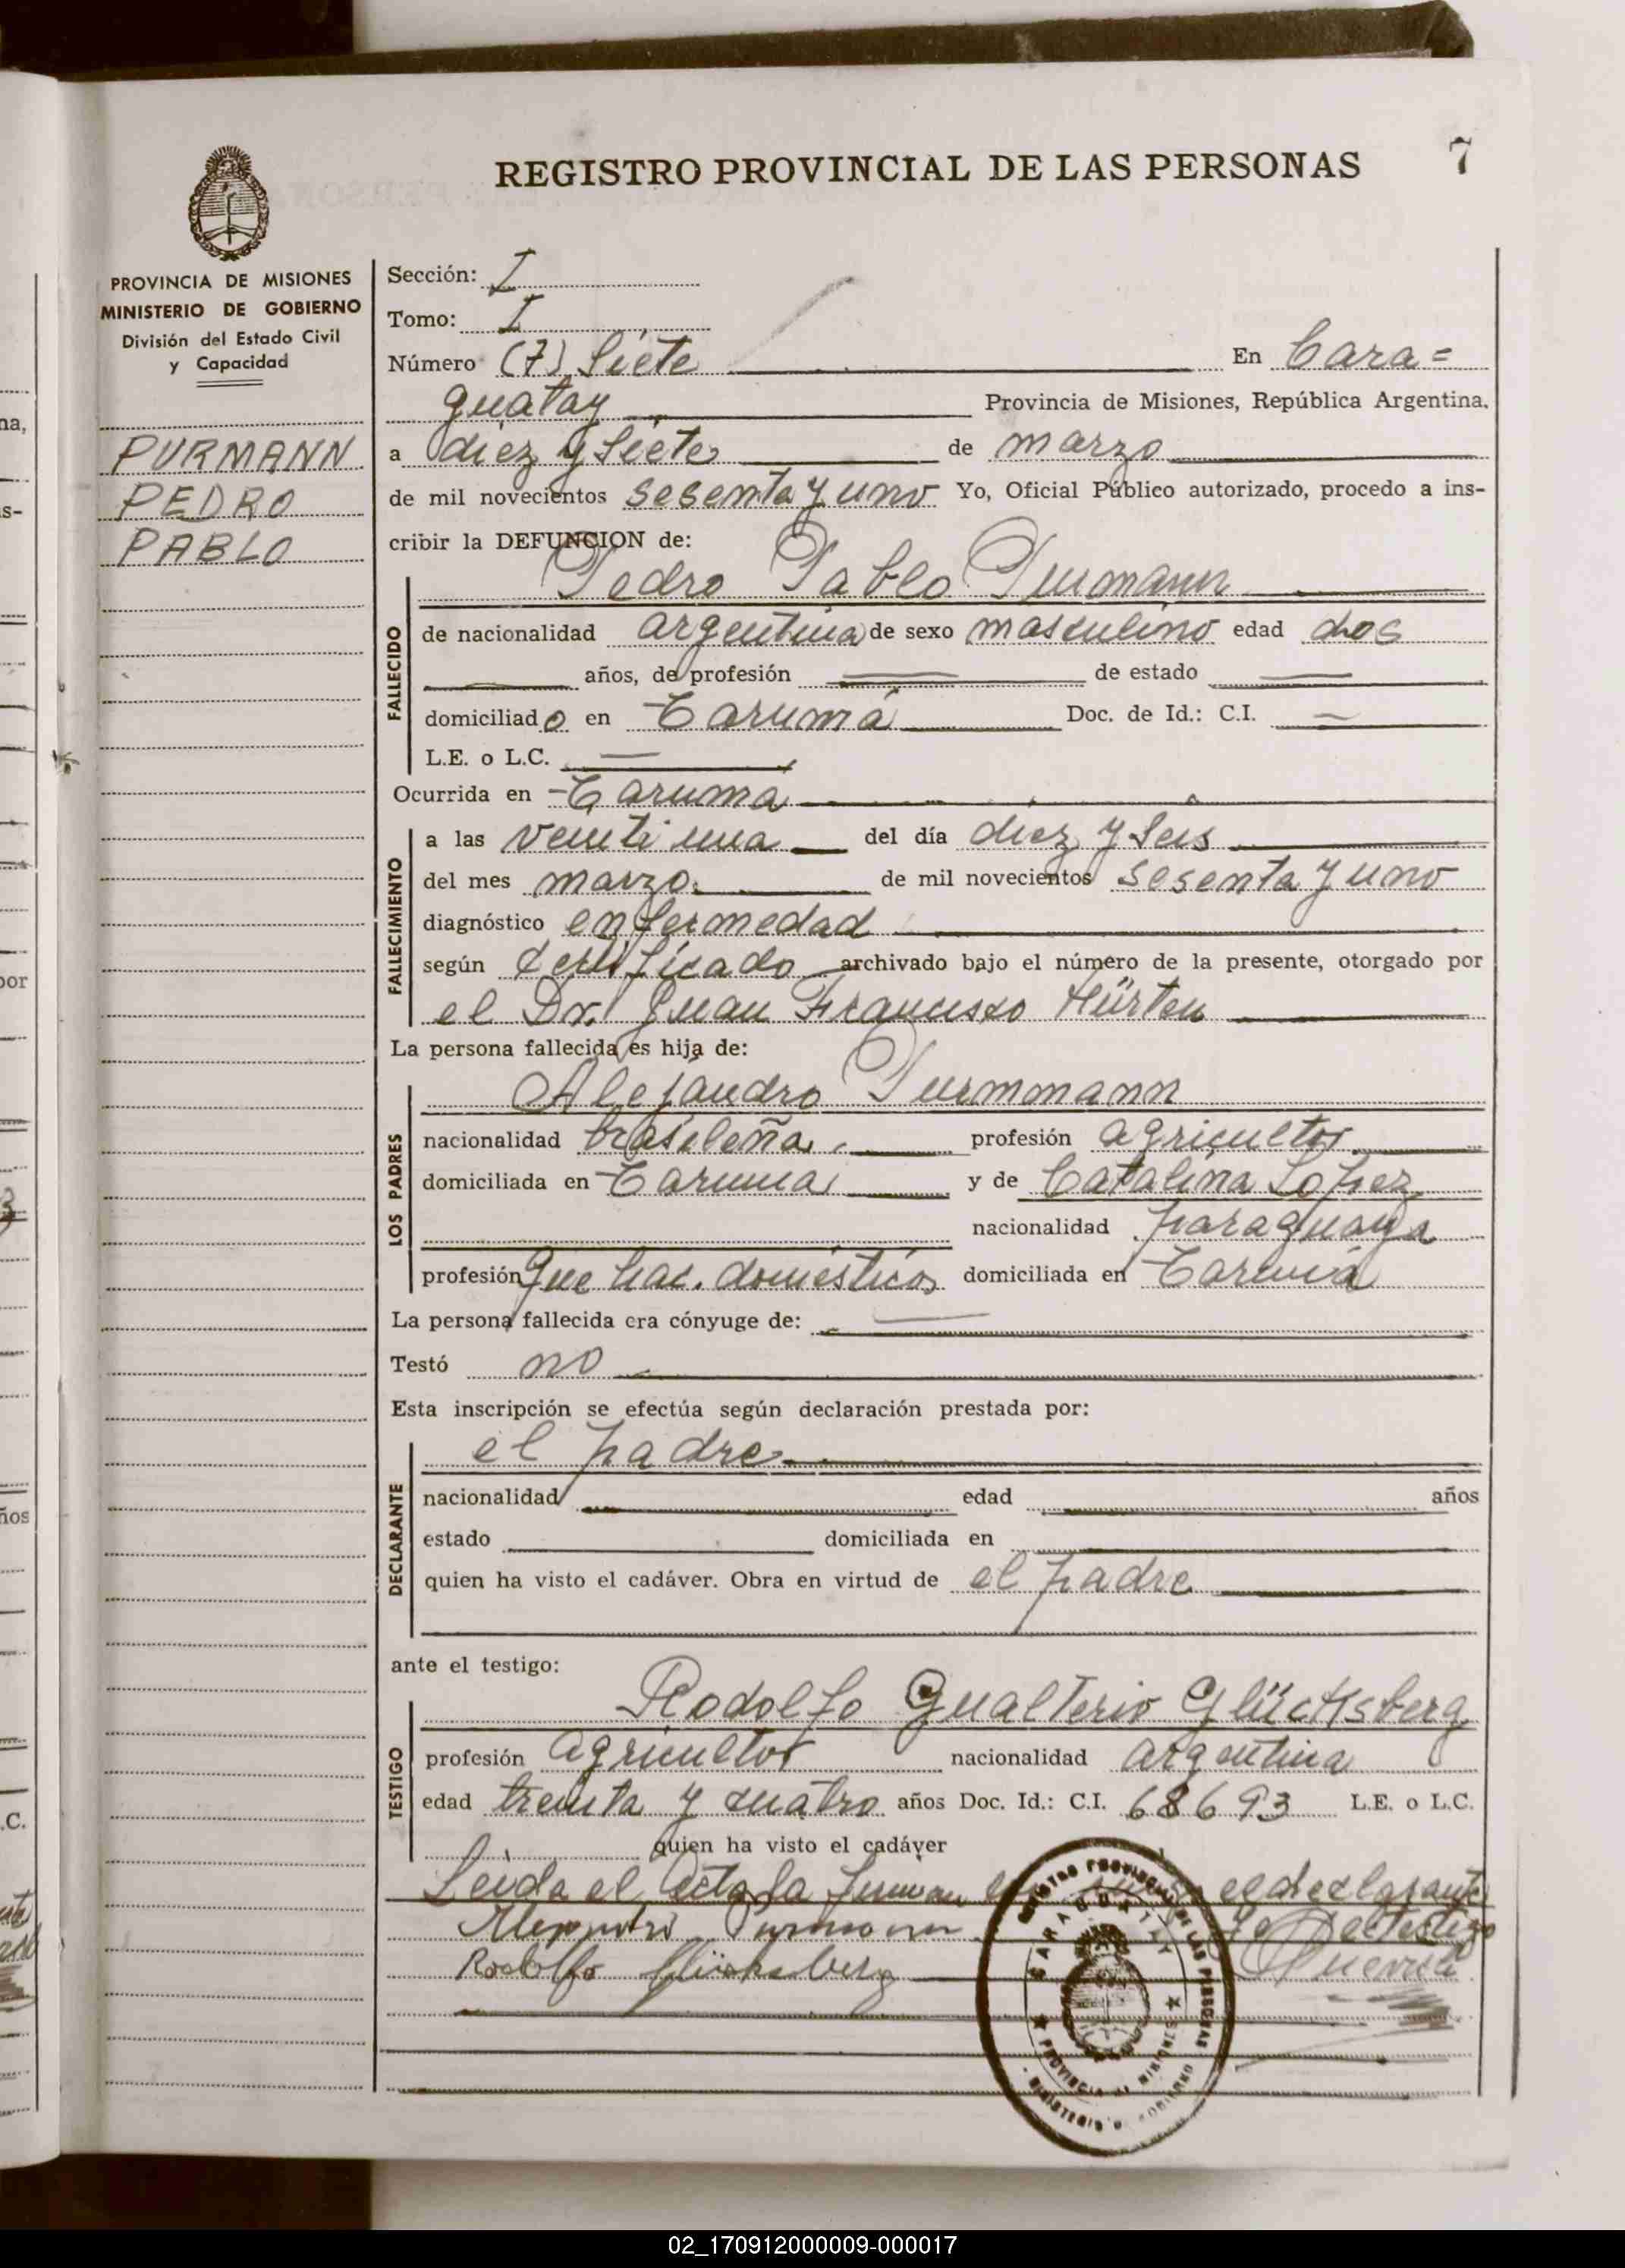 REGISTRO PROVINCIAL DE LAS PERSONAS
7
PROVINCIA DE MISIONES
MINISTERIO DE GOBIERNO
División del Estado Civil
y Capacidad
PURMANN
PEDRO
PABLO
Sección: I
Tomo: I
Número (7) Siete En Cara=
guatay Provincia de Misiones, República Argentina,
a diez y siete de marzo
de mil novecientos sesenta y uno Yo, Oficial Público autorizado, procedo a ins-
cribir la DEFUNCION de:
Pedro Pablo Purmann
FALLECIDO
de nacionalidad argentina de sexo masculino edad dos
años, de profesión de estado
domiciliado en Tarumá Doc. de Id.: C.I.
L.E. o L.C.
Ocurrida en Tarumá
FALLECIMIENTO
a las veinti una del día diez y seis
del mes marzo de mil novecientos sesenta y uno
diagnóstico enfermedad
según certificado archivado bajo el número de la presente, otorgado por
el Dr. Juan Francisco Hürten
La persona fallecida es hija de:
LOS PADRES
Alejandro Purmmann
nacionalidad brasileña profesión agricultor
domiciliada en Taruma y de Catalina Lopez
nacionalidad paraguaya
profesión Que hac. domésticos domiciliada en Tarumá
La persona fallecida era cónyuge de:
Testó no
Esta inscripción se efectúa según declaración prestada por:
DECLARANTE
el padre
nacionalidad edad años
estado domiciliada en
quien ha visto el cadáver. Obra en virtud de el padre
ante el testigo:
TESTIGO
Rodolfo Gualterio Glücksberg
profesión agricultor nacionalidad argentina
edad treinta y cuatro años Doc. Id.: C.I. 68693 L.E. o L.C.
quien ha visto el cadáver
Leida el Acta la firman el declarante
Alejandro Purmann y el testigo
Rodolfo Glücksberg
REGISTRO PROVINCIAL DE LAS PERSONAS
CARAGUATAY
PROVINCIA DE MISIONES
MINISTERIO DE GOBIERNO
02_170912000009-000017